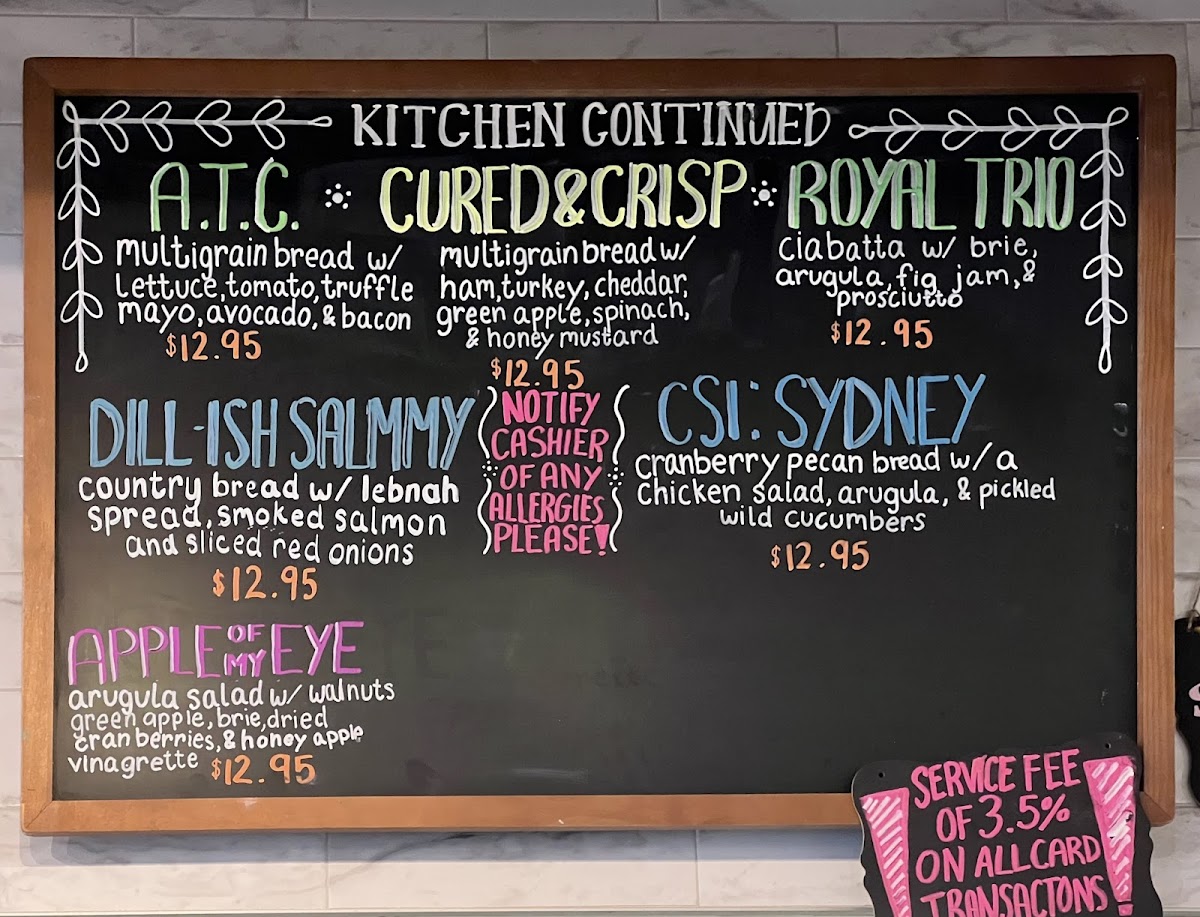 KITCHEN CONTINUED
A.T.C.
multigrain bread w/
lettuce, tomato, truffle
mayo, avocado, & bacon
$12.95
CURED & CRISP
multigrain bread w/
ham, turkey, cheddar,
green apple, spinach,
& honey mustard
$12.95
ROYAL TRIO
ciabatta w/ brie,
arugula, fig jam, &
prosciutto
$12.95
DILL-ISH SALMMY
country bread w/ lebnah
spread, smoked salmon
and sliced red onions
$12.95
NOTIFY
CASHIER
OF ANY
ALLERGIES
PLEASE!
CSI: SYDNEY
cranberry pecan bread w/ a
chicken salad, arugula, & pickled
wild cucumbers
$12.95
APPLE OF MY EYE
arugula salad w/ walnuts
green apple, brie, dried
cranberries, & honey apple
vinagrette $12.95
SERVICE FEE
OF 3.5%
ON ALL CARD
TRANSACTONS!